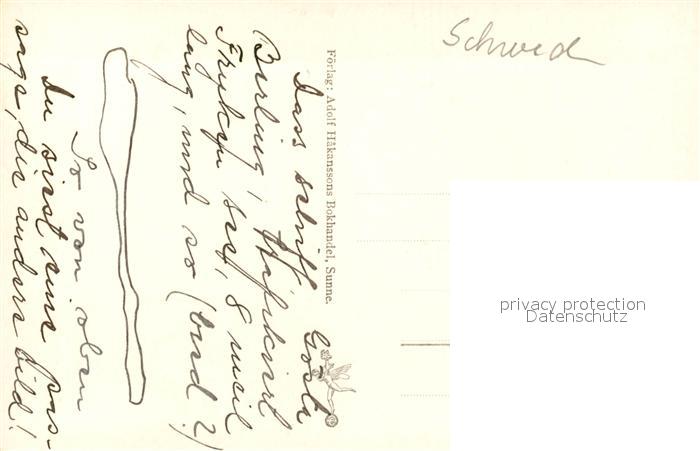 Schwed
Förlag: Adolf Håkanssons Bokhandel, Sunne.
Dass schiff Gösta
Berling,
Fryken see, 8 meil
lang, und so (bred ?)
So von oben
Du siest eine pas-
sage, die andere bild!
privacy protection
Datenschutz